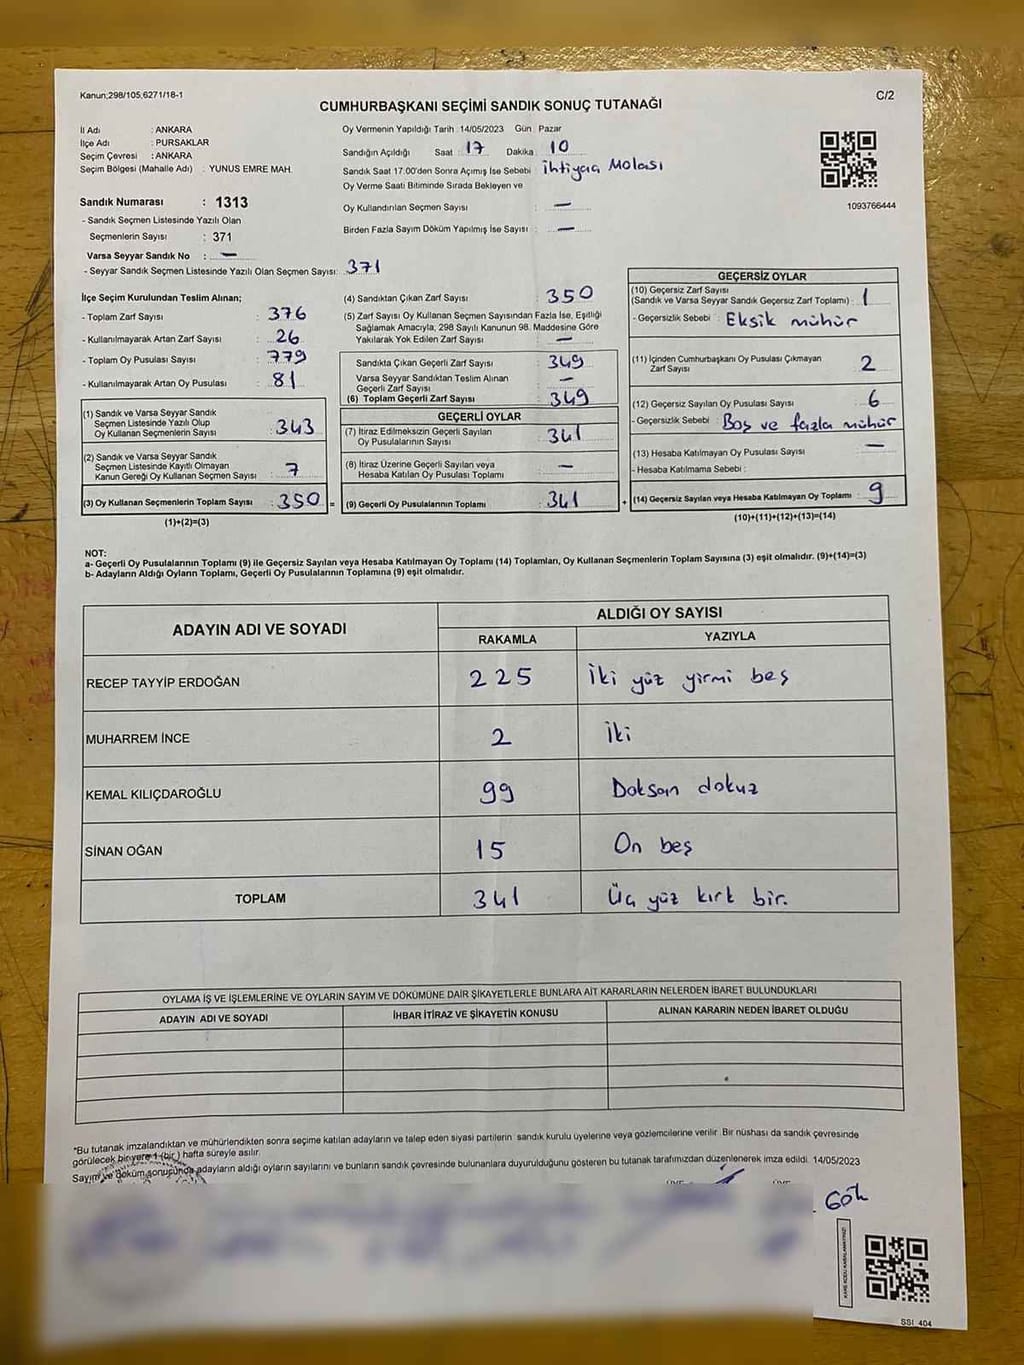 Kanun;298/105,6271/18-1
C/2
CUMHURBAŞKANI SEÇİMİ SANDIK SONUÇ TUTANAĞI
İl Adı : ANKARA
İlçe Adı : PURSAKLAR
Seçim Çevresi : ANKARA
Seçim Bölgesi (Mahalle Adı) : YUNUS EMRE MAH.
Sandık Numarası : 1313
- Sandık Seçmen Listesinde Yazılı Olan
Seçmenlerin Sayısı : 371
Varsa Seyyar Sandık No : —
- Seyyar Sandık Seçmen Listesinde Yazılı Olan Seçmen Sayısı: 371
Oy Vermenin Yapıldığı Tarih :14/05/2023 Gün : Pazar
Sandığın Açıldığı Saat : 17 Dakika : 10
Sandık Saat 17.00'den Sonra Açımış İse Sebebi : İhtiyaç Molası
Oy Verme Saati Bitiminde Sırada Bekleyen ve
Oy Kullandırılan Seçmen Sayısı : —
Birden Fazla Sayım Döküm Yapılmış İse Sayısı : —
1093766444
İlçe Seçim Kurulundan Teslim Alınan;
- Toplam Zarf Sayısı : 376
- Kullanılmayarak Artan Zarf Sayısı : 26
- Toplam Oy Pusulası Sayısı : 779
- Kullanılmayarak Artan Oy Pusulası : 81
(1) Sandık ve Varsa Seyyar Sandık
Seçmen Listesinde Yazılı Olup
Oy Kullanan Seçmenlerin Sayısı : 343
(2) Sandık ve Varsa Seyyar Sandık
Seçmen Listesinde Kayıtlı Olmayan
Kanun Gereği Oy Kullanan Seçmen Sayısı : 7
(3) Oy Kullanan Seçmenlerin Toplam Sayısı : 350 =
(1)+(2)=(3)
(4) Sandıktan Çıkan Zarf Sayısı : 350
(5) Zarf Sayısı Oy Kullanan Seçmen Sayısından Fazla İse, Eşitliği
Sağlamak Amacıyla, 298 Sayılı Kanunun 98. Maddesine Göre
Yakılarak Yok Edilen Zarf Sayısı : —
Sandıkta Çıkan Geçerli Zarf Sayısı : 349
Varsa Seyyar Sandıktan Teslim Alınan
Geçerli Zarf Sayısı : —
(6) Toplam Geçerli Zarf Sayısı : 349
GEÇERLİ OYLAR
(7) İtiraz Edilmeksizin Geçerli Sayılan
Oy Pusulalarının Sayısı : 341
(8) İtiraz Üzerine Geçerli Sayılan veya
Hesaba Katılan Oy Pusulası Toplamı : —
(9) Geçerli Oy Pusulalarının Toplamı : 341 +
GEÇERSİZ OYLAR
(10) Geçersiz Zarf Sayısı
(Sandık ve Varsa Seyyar Sandık Geçersiz Zarf Toplamı) : 1
- Geçersizlik Sebebi : Eksik mühür
(11) İçinden Cumhurbaşkanı Oy Pusulası Çıkmayan
Zarf Sayısı : 2
(12) Geçersiz Sayılan Oy Pusulası Sayısı : 6
- Geçersizlik Sebebi : Boş ve fazla mühür
(13) Hesaba Katılmayan Oy Pusulası Sayısı : —
- Hesaba Katılmama Sebebi :
(14) Geçersiz Sayılan veya Hesaba Katılmayan Oy Toplamı : 9
(10)+(11)+(12)+(13)=(14)
NOT:
a- Geçerli Oy Pusulalarının Toplamı (9) ile Geçersiz Sayılan veya Hesaba Katılmayan Oy Toplamı (14) Toplamları, Oy Kullanan Seçmenlerin Toplam Sayısına (3) eşit olmalıdır. (9)+(14)=(3)
b- Adayların Aldığı Oyların Toplamı, Geçerli Oy Pusulalarının Toplamına (9) eşit olmalıdır.
ADAYIN ADI VE SOYADI
ALDIĞI OY SAYISI
RAKAMLA YAZIYLA
RECEP TAYYİP ERDOĞAN 225 İki yüz yirmi beş
MUHARREM İNCE 2 İki
KEMAL KILIÇDAROĞLU 99 Doksan dokuz
SİNAN OĞAN 15 On beş
TOPLAM 341 Üç yüz kırk bir.
OYLAMA İŞ VE İŞLEMLERİNE VE OYLARIN SAYIM VE DÖKÜMÜNE DAİR ŞİKAYETLERLE BUNLARA AİT KARARLARIN NELERDEN İBARET BULUNDUKLARI
ADAYIN ADI VE SOYADI İHBAR İTİRAZ VE ŞİKAYETİN KONUSU ALINAN KARARIN NEDEN İBARET OLDUĞU
*Bu tutanak imzalandıktan ve mühürlendikten sonra seçime katılan adayların ve talep eden siyasi partilerin sandık kurulu üyelerine veya gözlemcilerine verilir. Bir nüshası da sandık çevresinde
görülecek bir yere 1 (bir ) hafta süreyle asılır.
Sayım ve döküm sonucunda adayların aldığı oyların sayılarını ve bunların sandık çevresinde bulunanlara duyurulduğunu gösteren bu tutanak tarafımızdan düzenlenerek imza edildi. 14/05/2023
SSI_404